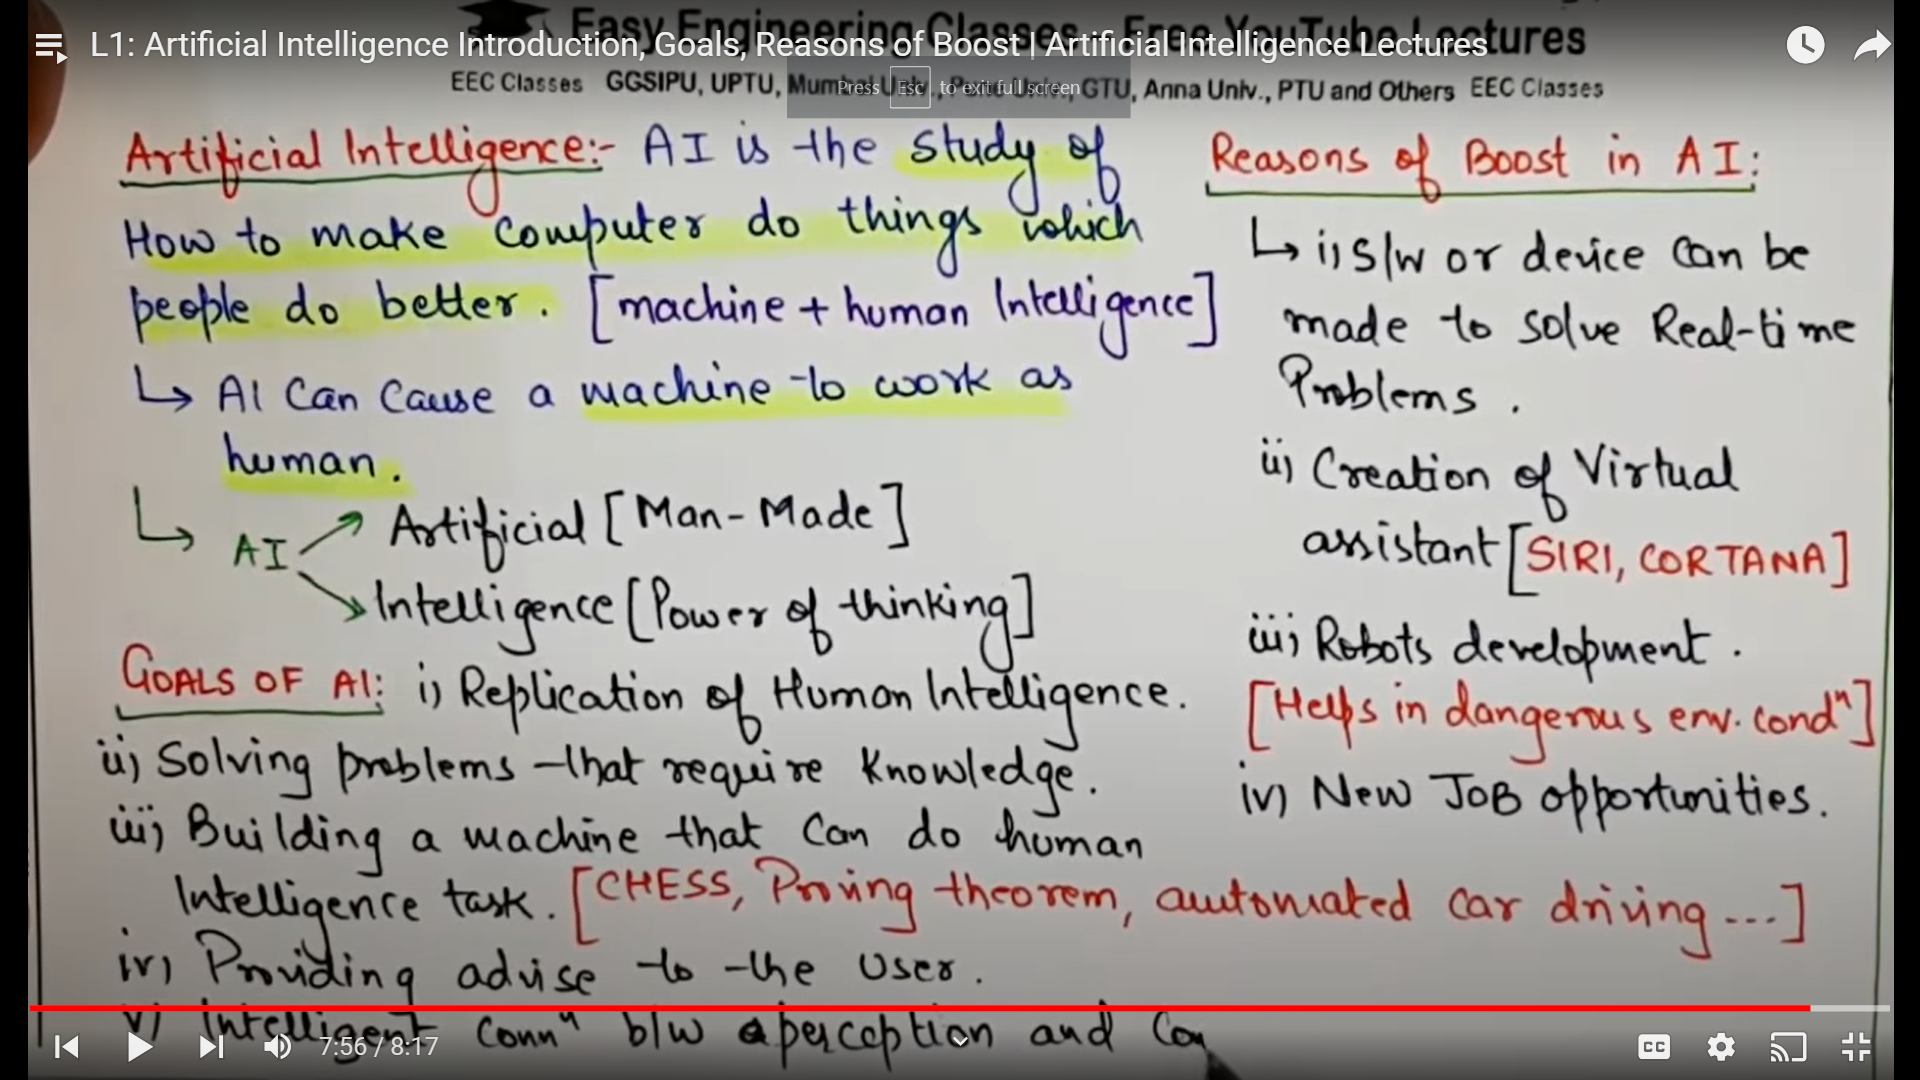 Easy Engineering Classes – Free YouTube Lectures
L1: Artificial Intelligence Introduction, Goals, Reasons of Boost | Artificial Intelligence Lectures
EEC Classes GGSIPU, UPTU, Mumbai Univ., Pune Univ., GTU, Anna Univ., PTU and Others EEC Classes
Press Esc to exit full screen
Artificial Intelligence:- AI is the study of
How to make computer do things which
people do better. [machine + human Intelligence]
↳ AI Can Cause a machine to work as
human.
↳ AI
Artificial [Man-Made]
Intelligence [Power of thinking]
GOALS OF AI: i) Replication of Human Intelligence.
ii) Solving problems that require Knowledge.
iii) Building a machine that Can do human
Intelligence task. [CHESS, Proving theorem, automated Car driving ...]
iv) Providing advise to the User.
v) Intelligent Connⁿ b/w perception and Con
Reasons of Boost in AI:
↳ i) S/W or device Can be
made to solve Real-time
Problems.
ii) Creation of Virtual
assistant [SIRI, CORTANA]
iii) Robots development.
[Helps in dangerous env. condⁿ]
iv) New JOB opportunities.
7:56 / 8:17
CC